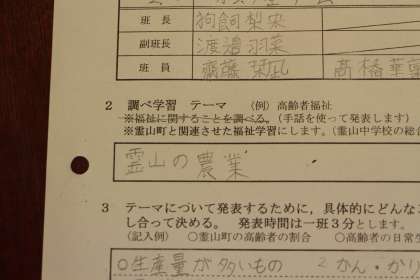 班長 狗飼梨央
副班長 渡邉羽菜
班員 齋藤栞凪 高橋華
2 調べ学習 テーマ (例)高齢者福祉
※福祉に関することを調べる。(手話を使って発表します)
※霊山町と関連させた福祉学習にします。(霊山中学校の総合
霊山の農業
3 テーマについて発表するために,具体的にどんな
し合って決める。 発表時間は一班3分とします。
(記入例) ○霊山町の高齢者の割合 ○高齢者の日常生
○生産量が多いもの